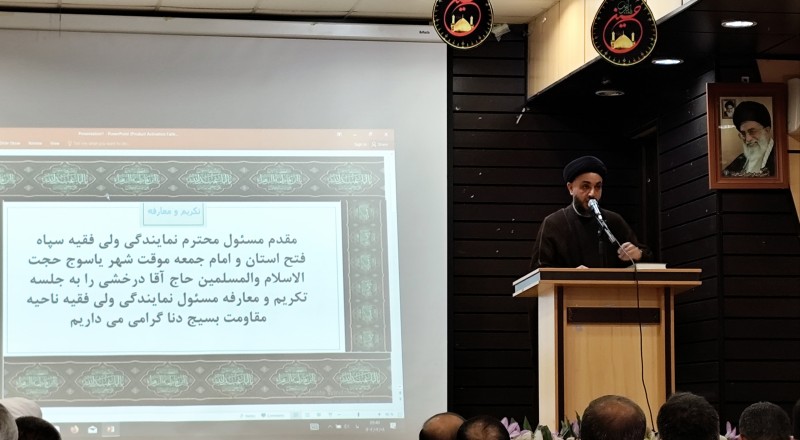 تکریم و معارفه
مقدم مسئول محترم نمایندگی ولی فقیه سپاه
فتح استان و امام جمعه موقت شهر یاسوج حجت
الاسلام والمسلمین حاج آقا درخشی را به جلسه
تکریم و معارفه مسئول نمایندگی ولی فقیه ناحیه
مقاومت بسیج دنا گرامی می داریم